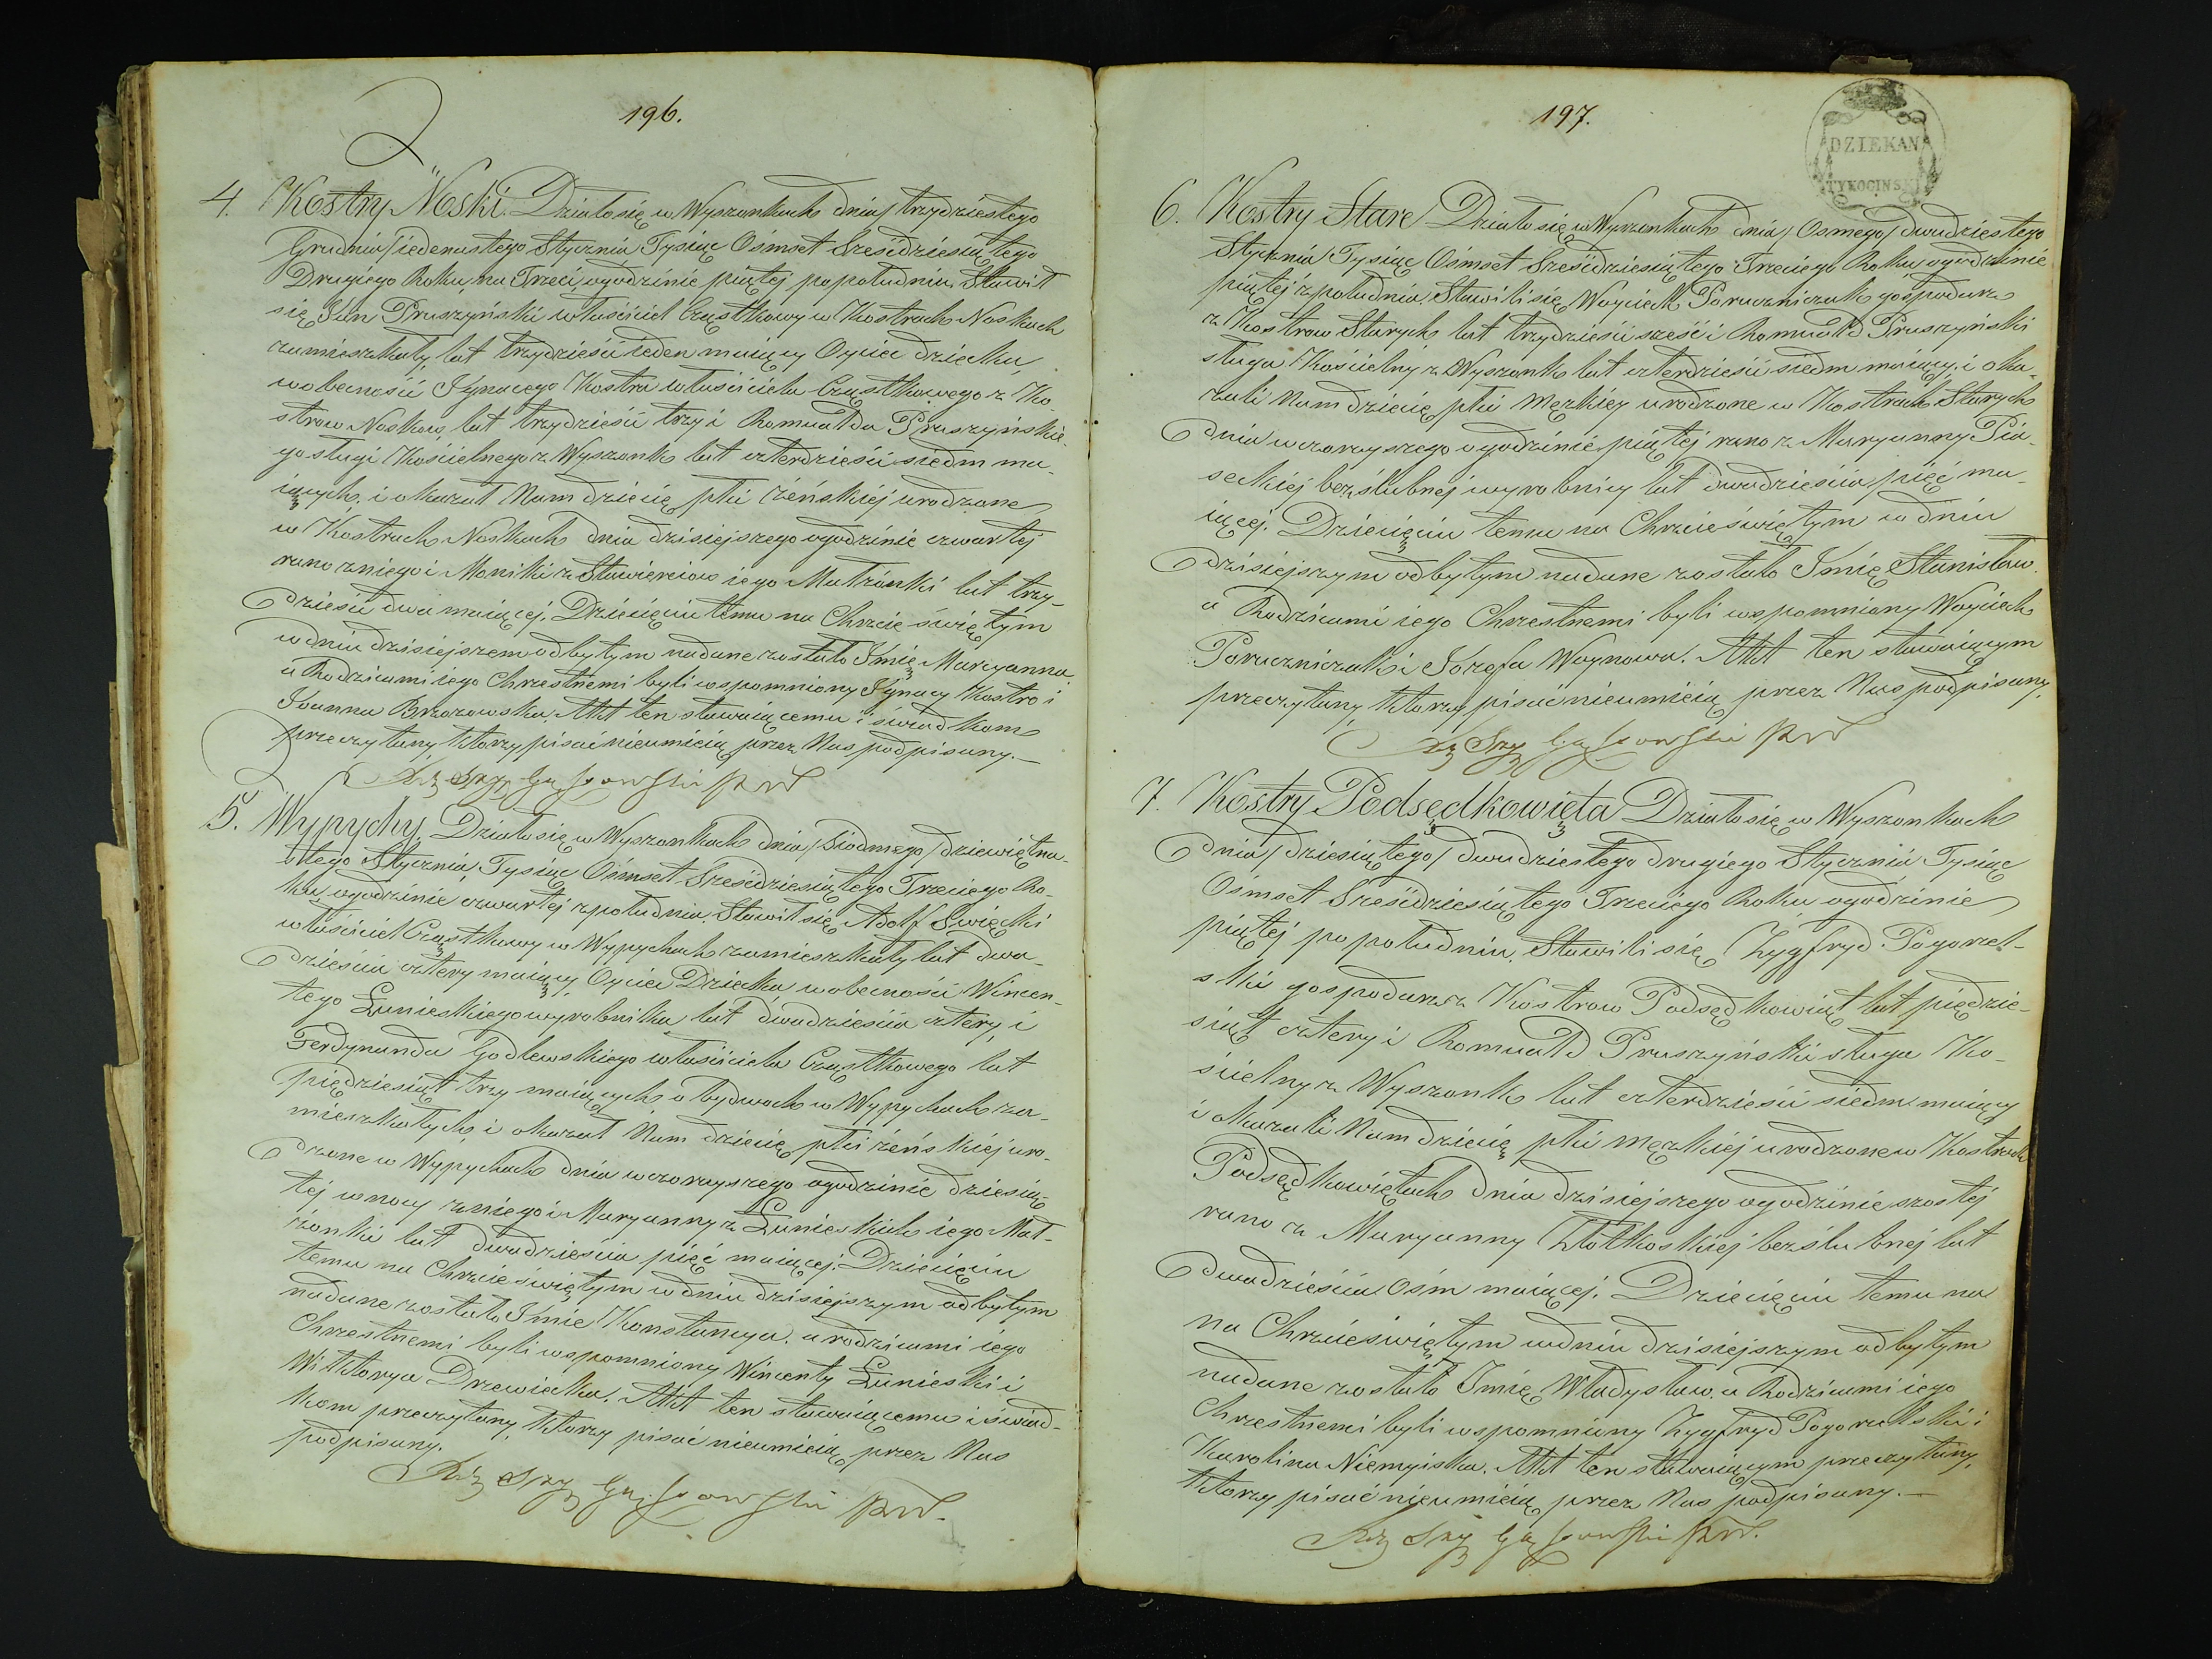 196.
4. Kostry Noski. Działo się w Wyszonkach dnia / trzydziestego
Grudnia / iedenastego Stycznia Tysiąc Ośmset Sześcdziesiątego
Drugiego Roku, na Trzeci, ogodzinie piątej popołudniu. Stawił
się Jan Pruszyński właściciel Cząstkowy w Kostrach Noskach
zamieszkały, lat trzydzieści ieden maiący Oyciec dziecka,
wobecności Ignacego Kostra właściciela Cząstkowego z Ko-
strow Noskow, lat trzydzieści trzy i Romualda Pruszyńskie-
go sługi Kościelnego z Wyszonk lat czterdzieści siedm ma-
iących, i okazał Nam dziecię płci żeńskiéj urodzone
w Kostrach Noskach dnia dzisiejszego ogodzinie czwartej
rano zniego i Moniki z Sławięciow iego Małżonki lat trzy-
dzieści dwa maiącej. Dziecięciu temu na Chrzcie świętym
wdniu dzisiejszem odbytym nadane zostało Imię Maryanna,
a Rodzicami iego Chrzestnemi byli wspomniony Ignacy Kostro i
Joanna Brzozowska. Akt ten stawaiącemu i świadkom
przeczytany, ktorzy pisać nieumieią przez Nas podpisany.—
5. Wypychy. Działo się w Wyszonkach dnia / Siodmego / dziewiętna-
stego Stycznia, Tysiąc Ośmset Sześcdziesiątego Trzeciego Ro-
ku, ogodzinie czwartej zpołudnia. Stawił się Adolf Święcki
właściciel Cząstkowy w Wypychach zamieszkały lat dwa-
dzieścia cztery maiący, Oyciec Dziecka, wobecności Wincen-
tego Łunieskiego wyrobnika lat dwadzieścia cztery, i
Ferdynanda Godlewskiego właściciela Cząstkowego lat
pięcdziesiąt trzy maiących obydwoch w Wypychach za-
mieszkałych, i okazał Nam dziecię płci żeńskiéj uro-
dzone w Wypychach dnia wczorayszego ogodzinie dziesią-
tej wnocy zniego i Maryanny z Łunieskich iego Mał-
żonki lat dwadzieścia pięć maiącej. Dziecięciu
temu na Chrzcie świętym wdniu dzisiejszym odbytym
nadane zostało Imie Konstancya, a rodzicami iego
Chrzestnemi byli wspomniony Wincenty Łunieski i
Wiktorya Drzewiecka. Akt ten stawaiącemu i świad-
kom przeczytany, ktorzy pisać nieumieią, przez Nas
podpisany.
197.
DZIEKAN
TYKOCINSKI
6. Kostry Stare Działo się w Wyszonkach dnia / Osmego / dwudziestego
Stycznia Tysiąc Ośmset Sześcdziesiątego Trzeciego Roku, ogodzinie
piątej zpołudnia. Stawili się Woyciech Poruczniczak gospodarz
z Kostrow Starych lat trzydzieści sześć i Romuald Pruszyński
sługa Kościelny z Wyszonk lat czterdzieści siedm maiący, i oka-
zali Nam dziecię płci Męzkiéy urodzone w Kostrach Starych
dnia wczorayszego ogodzinie piątej rano z Maryanny Pia-
seckiej bezślubnej wyrobnicy lat dwadzieścia pięć ma-
iącej. Dziecięciu temu na Chrzcie świętym w dniu
dzisiejszym odbytym nadane zostało Imię Stanisław.
a Rodzicami iego Chrzestnemi byli wspomniony Woyciech
Poruczniczak i Jozefa Woynowa. Akt ten stawaiącym
przeczytany, ktorzy pisać nieumieią przez Nas podpisany.
7. Kostry Podsędkowięta Działo się w Wyszonkach
dnia / dziesiątego / dwudziestego drugiego Stycznia, Tysiąc
Ośmset Sześcdziesiątego Trzeciego Roku ogodzinie
piątej po południu. Stawili się Zygfryd Pogorzel-
ski gospodarz z Kostrow Podsędkowiąt lat pięcdzie-
siąt cztery i Romuald Pruszyński sługa Ko-
ścielny z Wyszonk lat czterdzieści siedm maiący
i okazali Nam dziecię płci męzkiéj urodzone w Kostrach
Podsędkowiętach dnia dzisiejszego ogodzinie szostej
rano z Maryanny Złotkoskiej bezślubnej lat
dwadzieścia Ośm maiącej. Dziecięciu temu na
na Chrzcie świętym wdniu dzisiejszym odbytym
nadane zostało Imię Władysław. a Rodzicami iego
Chrzestnemi byli wspomniony Zygfryd Pogorzelski i
Karolina Niemyiska. Akt ten stawaiącym przeczytany,
ktorzy pisać nieumieią, przez Nas podpisany.—